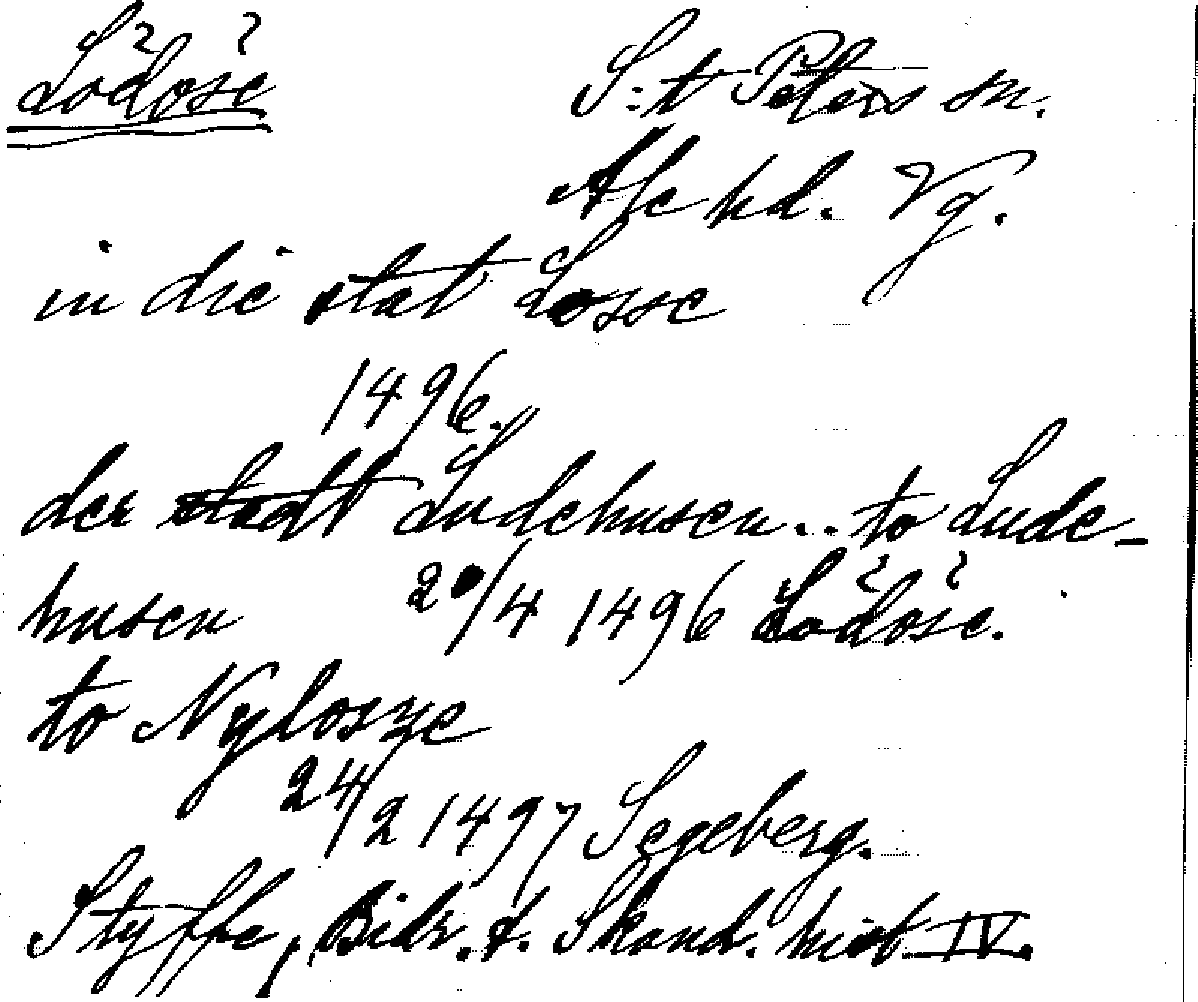 Lödöse
S:t Peters sn.
Ale hd. Vg.
in die stat Losse
1496.
der stadt Ludehusen.. to Lude-
husen 20/4 1496 Lödöse.
to Nylosze
24/2 1497 Segeberg.
Styffe, Bidr. t. Skand. hist IV.